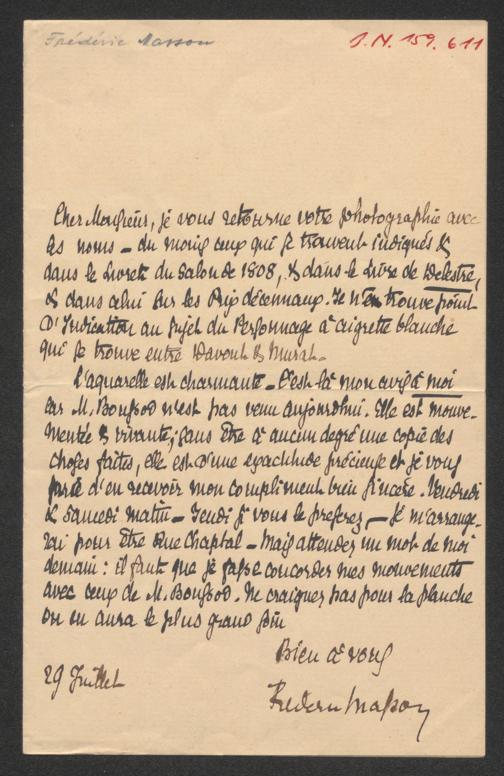 Frédéric Masson
I.N. 159.611
Cher Monsieur, je vous retourne votre photographie avec
les noms – du moins ceux qui se trouvent indiqués &
dans le Livret du Salon de 1808, & dans le Livre de Delestre,
& dans celui sur les Prix décennaux. Je n'en trouve point
d'Indication au sujet du Personnage à aigrette blanche
qui se trouve entre Davout & Murat.
L'aquarelle est charmante – C'est là mon avis à moi
car M. Boussod n'est pas venu aujourd'hui. Elle est mouve-
mentée & vivante, sans être à aucun degré une copie des
choses faites, elle est d'une exactitude précieuse et je vous
prie d'en recevoir mon compliment bien sincère. Vendredi
& Samedi matin – Jeudi si vous le préférez – Je m'arrange-
rai pour être Rue Chaptal – Mais attendez un mot de moi
demain : il faut que je fasse concorder mes mouvements
avec ceux de M. Boussod. Ne craignez pas pour la planche
on en aura le plus grand soin
Bien à vous
29 Juillet
Frédéric Masson